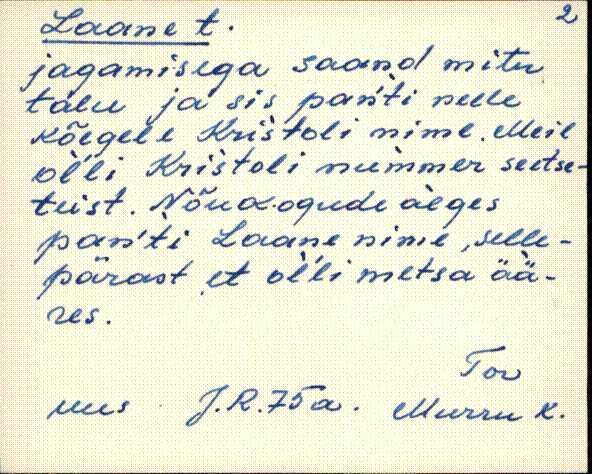 2
Laane t.
jagamisega saand mitu
talu ja sis pańti nelle
kõegele Kristoli nime. Meil
olli Kristoli nummer seetse-
teist. Nõukogude aeges
pańti Laane nime, selle-
pärast et olli metsa ää-
res.
Tor
uus J.R. 75 a. Murru k.